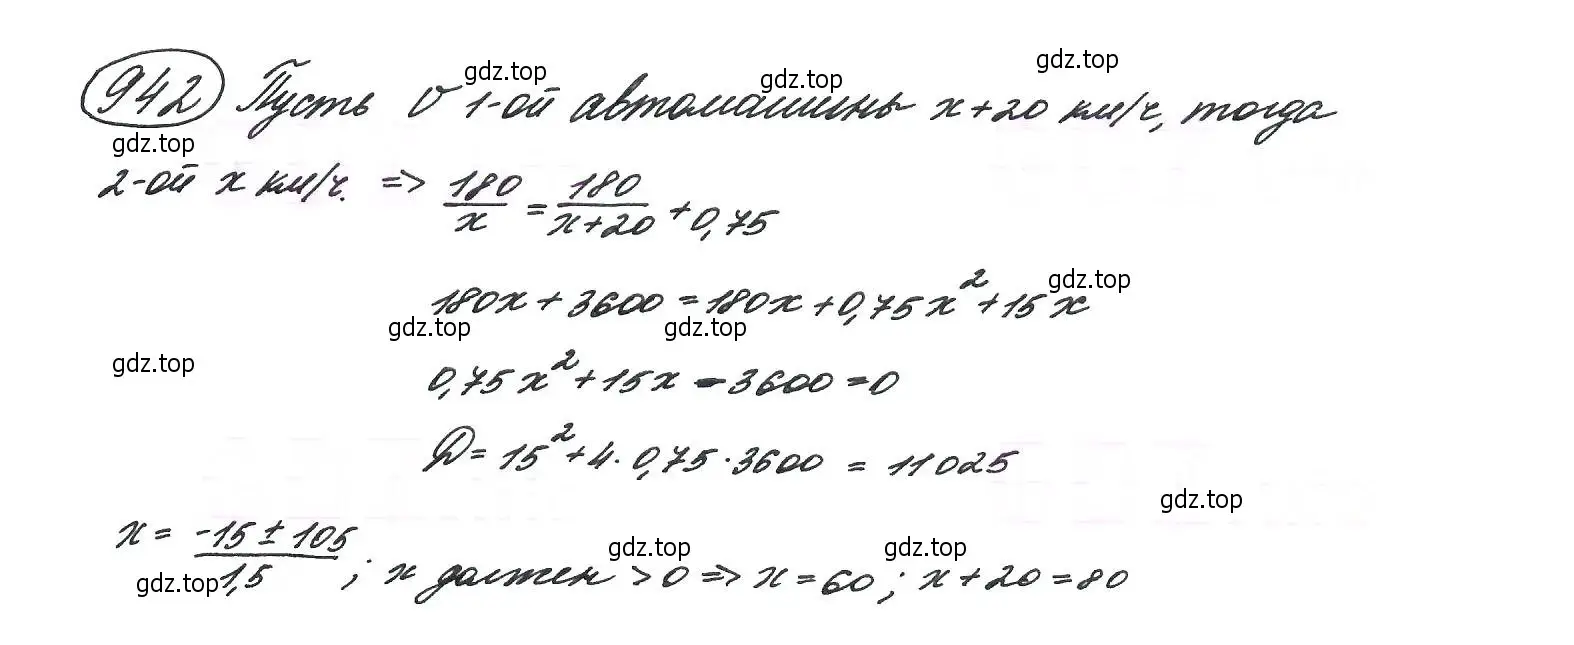 942 Пусть v 1-ой автомашины x+20 км/ч, тогда
2-ой x км/ч. => 180/x = 180/(x+20) + 0,75
180x + 3600 = 180x + 0,75x² + 15x
0,75x² + 15x - 3600 = 0
D = 15² + 4 · 0,75 · 3600 = 11025
x = (-15 ± 105)/1,5 ; x должен > 0 => x = 60 ; x + 20 = 80
gdz.top
gdz.top
gdz.top
gdz.top
gdz.top
gdz.top
gdz.top
gdz.top
gdz.top
gdz.top
gdz.top
gdz.top